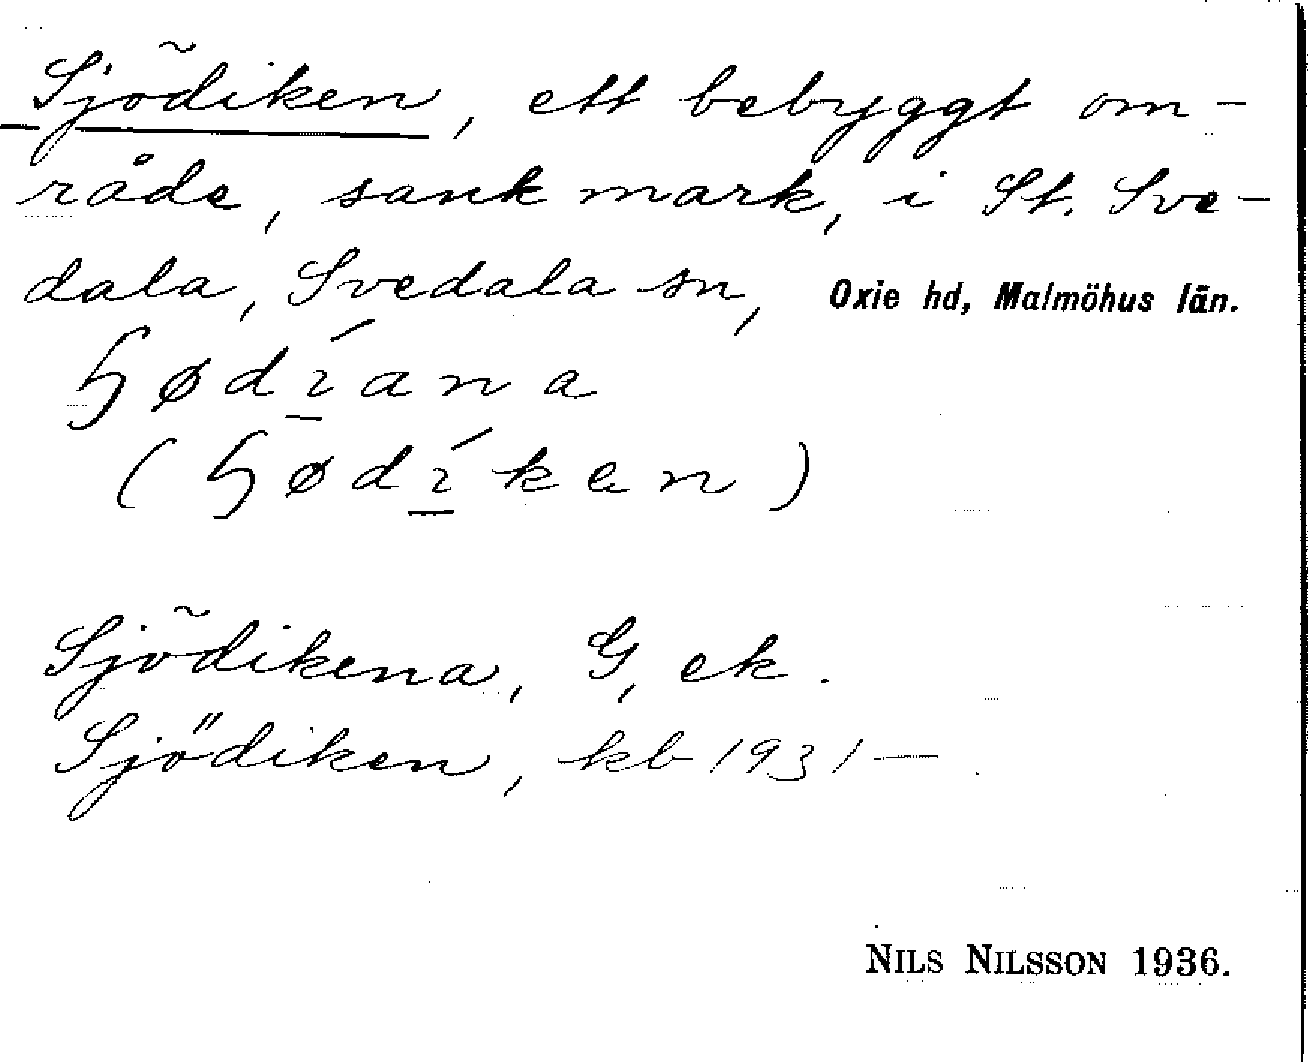 Sjödiken, ett bebyggt om-
råde, sank mark, i St. Sve-
dala, Svedala sn, Oxie hd, Malmöhus län.
ɧødíana
(ɧødíken)
Sjödikena, G, ek.
Sjödiken, kb 1931—.
NILS NILSSON 1936.